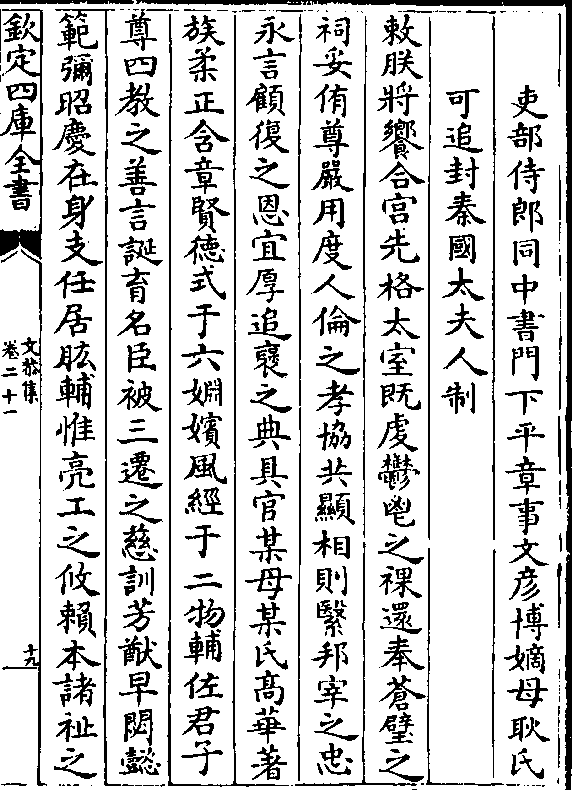 吏部侍郎同中書門下平章事文彦博嫡母耿氏
可追封秦國太夫人制
敕朕將饗合宫先格太室既虔鬱鬯之祼還奉蒼璧之
祠妥侑尊嚴用度人倫之孝協共顯相則繄邦宰之忠
永言顧復之恩宜厚追襃之典具官某母某氏髙華著
族柔正含章賢徳式于六姻嬪風經于二物輔佐君子
尊四教之善言誕育名臣被三遷之慈訓芳猷早閟懿
範彌昭慶在身支任居肱輔惟亮工之攸賴本諸祉之
欽定四庫全書
文恭集
卷二十一
十九